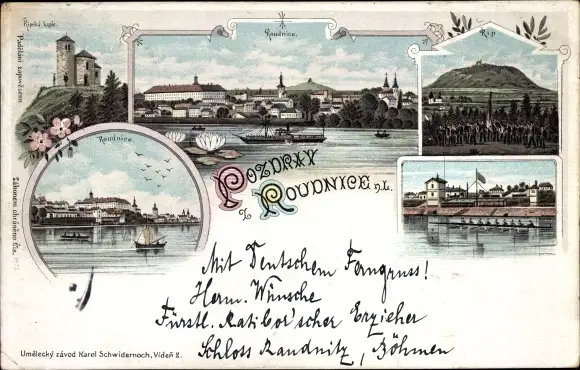 Řipská kaple.
Roudnice.
Řip
Padělání zapovězeno
Roudnice.
POZDRAV
z ROUDNICE n/L.
zákonem chráněno
Mit Deutschem Ferngruss!
Herm. Wünsche
Fürstl. Ratibor'scher Erzieher
Schloss Raudnitz, Böhmen
Umělecký závod Karel Schwidernoch, Vídeň 2.